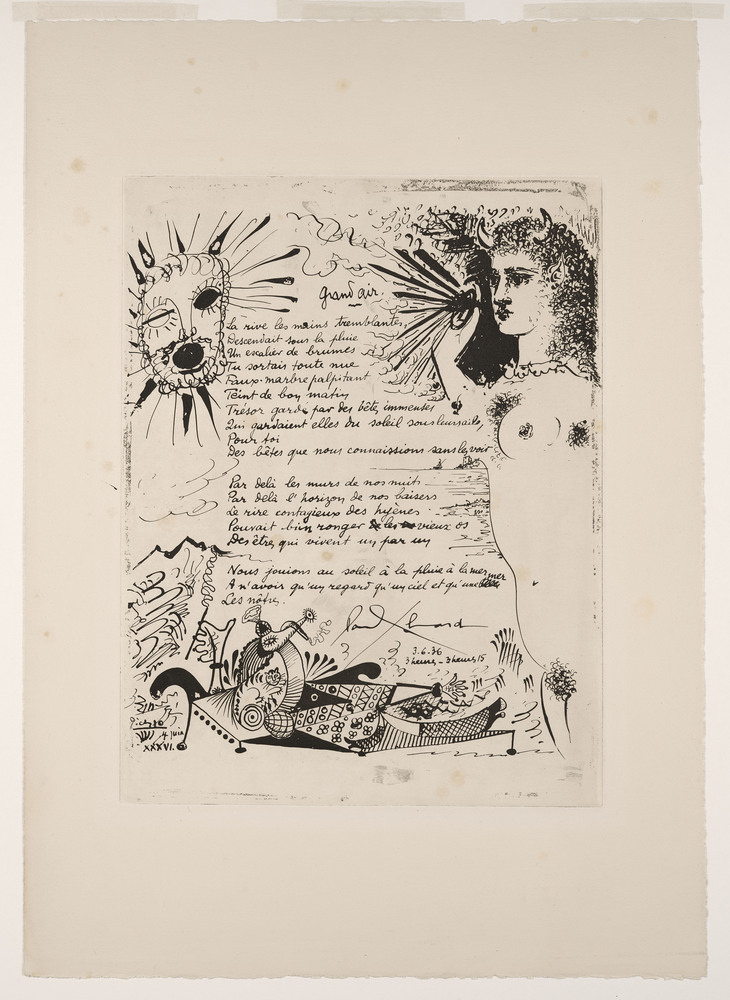 Grand air.
La rive les mains tremblantes
Descendait sous la pluie
Un escalier de brumes
Tu sortais toute nue
Faux marbre palpitant
Teint de bon matin
Trésor gardé par des bêtes immenses
Qui gardaient elles du soleil sous leurs ailes
Pour toi
Des bêtes que nous connaissions sans les voir
Par delà les murs de nos nuits
Par delà l'horizon de nos baisers
Le rire contagieux des hyènes
Pouvait bien ronger les vieux os
Des êtres qui vivent un par un
Nous jouions au soleil à la pluie à la mer
A n'avoir qu'un regard qu'un ciel et qu'une mer
Les nôtres.
Paul Eluard
3.6.36
3 heures - 3 heures 15
Picasso
4 juin
XXXVI.